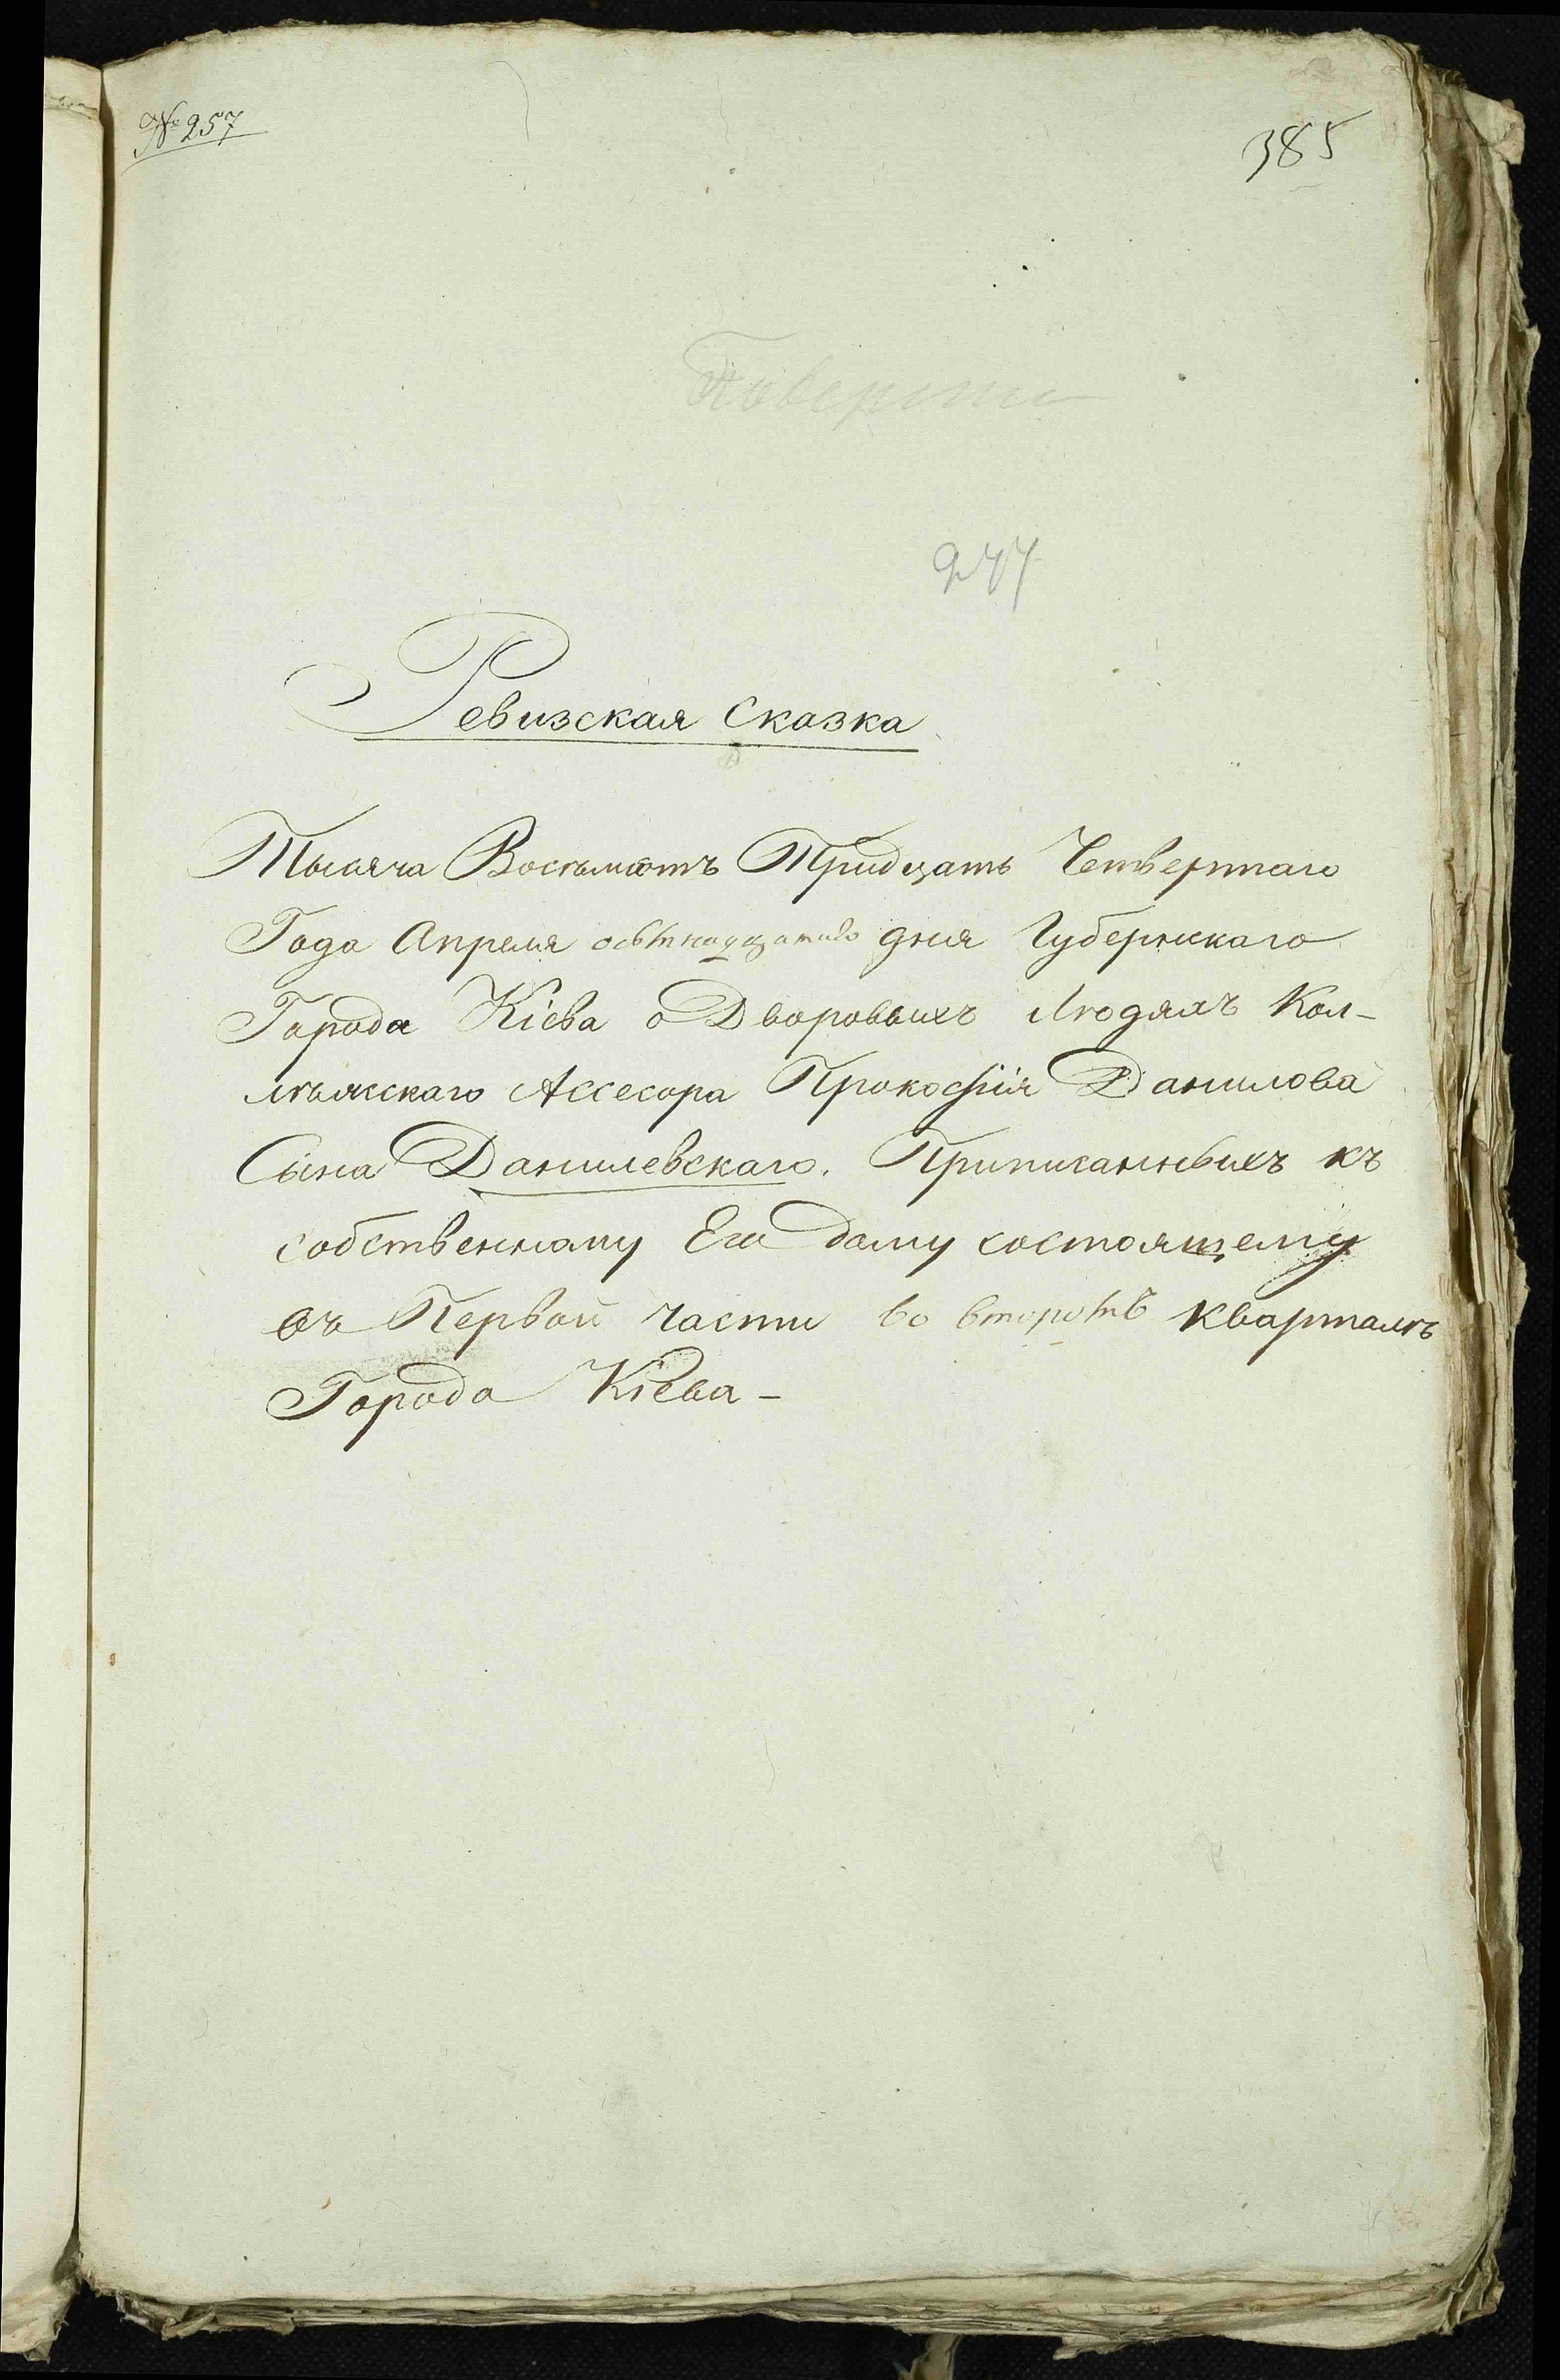 № 257
385
Поверити
277
Ревизская Сказка
Тысяча Восъмсотъ Тридцать Четвертаго
Года Апреля осьмнадцатаго дня Губернскаго
Города Кіева о Дворовыхъ Людяхъ Кол-
лѣжскаго Ассесора Прокофія Данилова
Сына Данилевскаго. Приписанныхъ къ
собственному Его дому состоящему
въ Первой части во второмъ кварталѣ
Города Кіева –